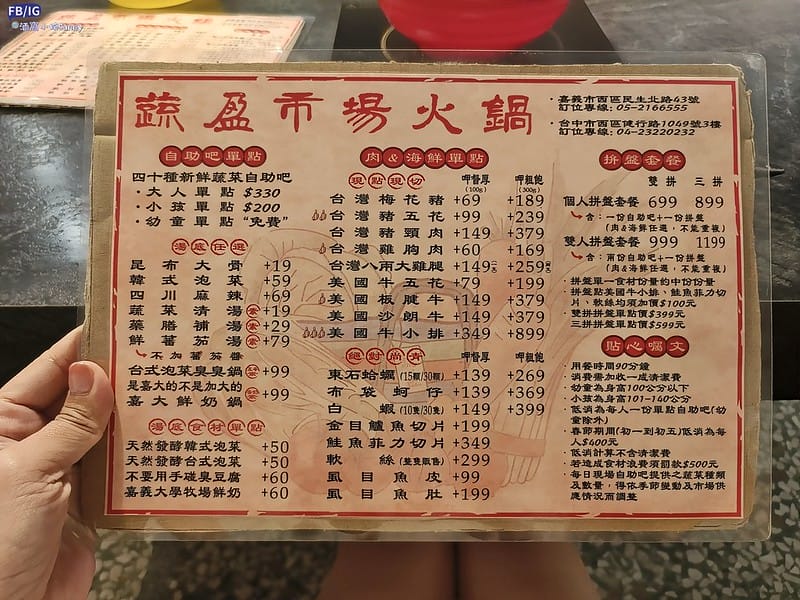 FB/IG
蔬盈市場火鍋
・嘉義市西區民生北路43號
訂位專線: 05-2166555
・台中市西區健行路1049號3樓
訂位專線: 04-23220232
自助吧單點
四十種新鮮蔬菜自助吧
・大人單點 $330
・小孩單點 $200
・幼童單點 “免費”
湯底任選
昆布大骨 +19
韓式泡菜 +59
四川麻辣 +69
蔬菜清湯 素 +19
藥膳補湯 素 +29
鮮蕃茄湯 素 +79
不加蕃茄醬
台式泡菜臭臭鍋 +99
是嘉大的不是加大的
嘉大鮮奶鍋 +99
湯底食材單點
天然發酵韓式泡菜 +50
天然發酵台式泡菜 +50
不要用手碰臭豆腐 +60
嘉義大學牧場鮮奶 +60
肉&海鮮單點
現點現切 呷督厚(100g) 呷粗飽(300g)
台灣梅花豬 +69 +189
台灣豬五花 +99 +239
台灣豬頸肉 +149 +379
台灣雞胸肉 +60 +169
台灣八兩大雞腿 +149 +259
美國牛五花 +79 +199
美國板腱牛 +149 +379
美國沙朗牛 +149 +379
美國牛小排 +349 +899
絕對尚青 呷督厚 呷粗飽
東石蛤蠣(15顆/30顆) +139 +269
布袋蚵仔 +139 +369
白蝦(10隻/30隻) +149 +399
金目鱸魚切片 +199
鮭魚菲力切片 +349
軟絲(整隻販售) +299
虱目魚皮 +99
虱目魚肚 +199
拼盤套餐
雙拼 三拼
個人拼盤套餐 699 899
含:一份自助吧+一份拼盤
(肉&海鮮任選,不能重複)
雙人拼盤套餐 999 1199
含:兩份自助吧+一份拼盤
(肉&海鮮任選,不能重複)
・拼盤單一食材份量約中份份量
・拼盤點美國牛小排、鮭魚菲力切片、軟絲均須加價$100元
・雙拼拼盤單點價$399元
・三拼拼盤單點價$599元
貼心囑文
・用餐時間90分鐘
・消費需加收一成清潔費
・幼童為身高100公分以下
・小孩為身高101-140公分
・低消為每人一份單點自助吧(幼童除外)
・春節期間(初一到初五)低消為每人$400元
・低消計算不含清潔費
・若造成食材浪費須罰款$500元
・每日現場自助吧提供之蔬菜種類及數量,得依季節變動及市場供應情況而調整